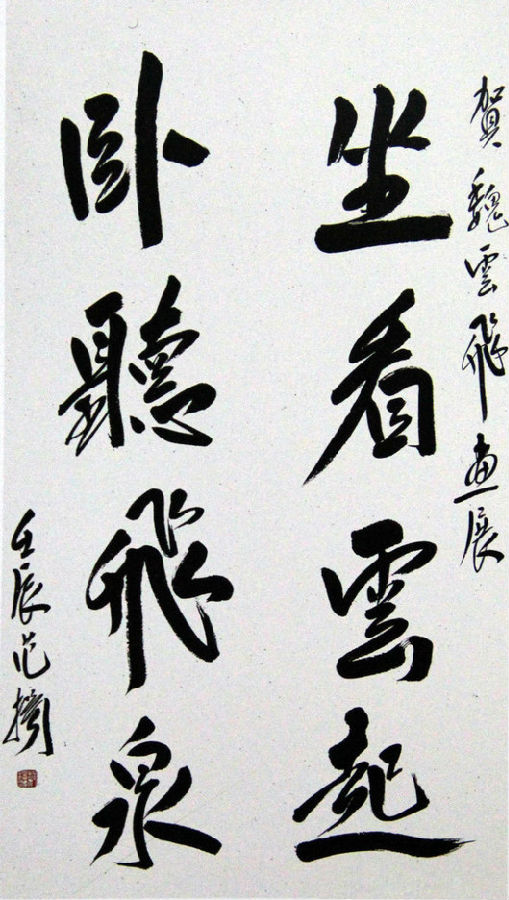 賀魏雲飛画展
坐看雲起
卧聽飛泉
壬辰范扬